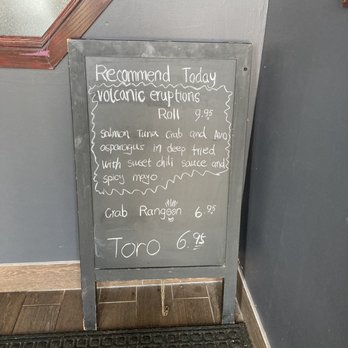 Recommend Today
volcanic eruptions
Roll 9.95
Salmon Tuna Crab and Avo
asparagus in deep fried
with sweet chili sauce and
spicy mayo
Crab Rangoon 6.95
Toro 6.95